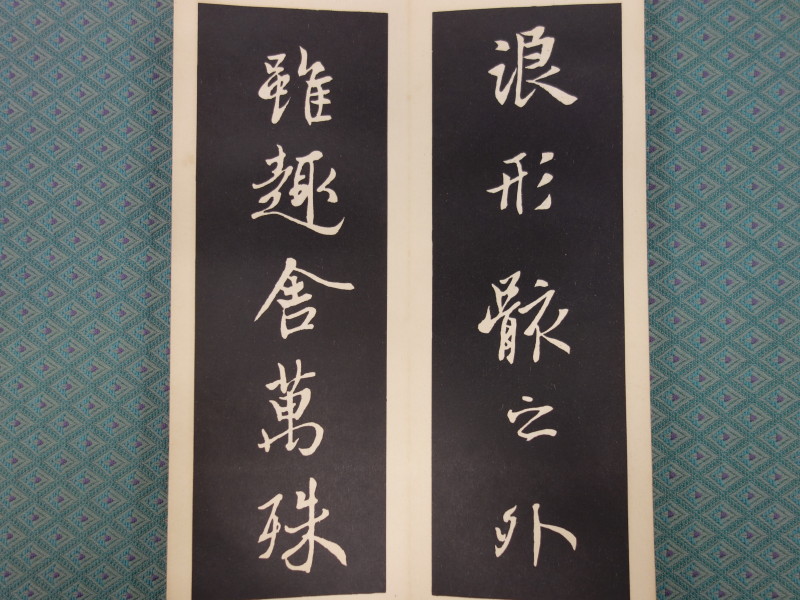 浪形骸之外
雖趣舍萬殊